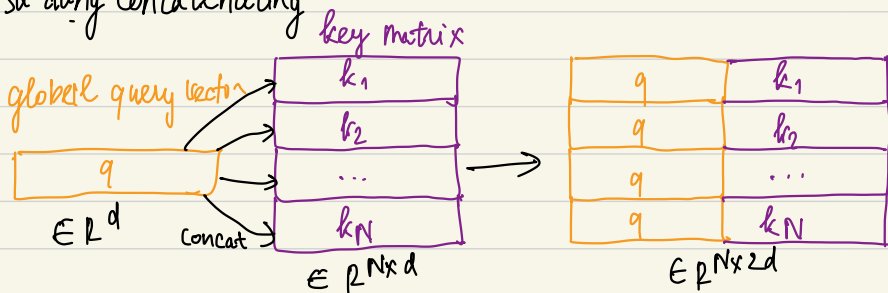 sử dụng concatenating
key matrix
global query vector
q
∈ R^d
concat
k₁
k₂
...
k_N
∈ R^{N×d}
q k₁
q k₂
q ...
q k_N
∈ R^{N×2d}